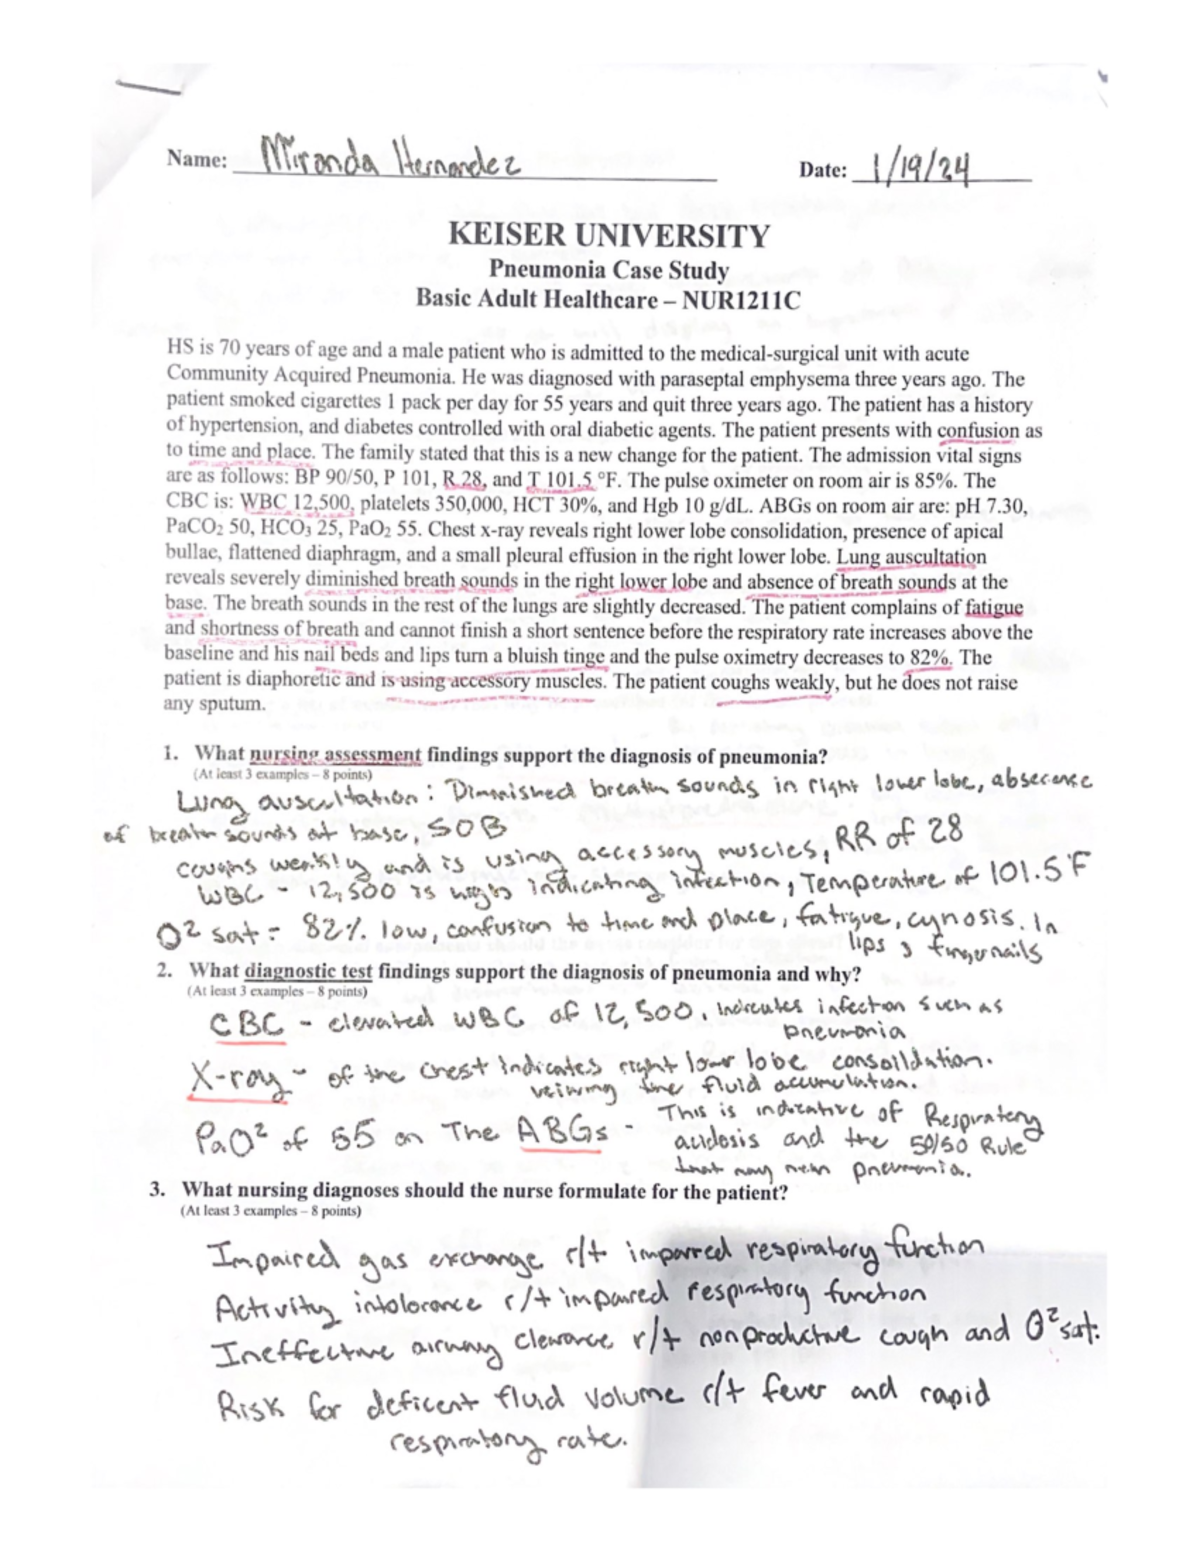 Name: Miranda Hernandez Date: 1/19/24
KEISER UNIVERSITY
Pneumonia Case Study
Basic Adult Healthcare – NUR1211C
HS is 70 years of age and a male patient who is admitted to the medical-surgical unit with acute
Community Acquired Pneumonia. He was diagnosed with paraseptal emphysema three years ago. The
patient smoked cigarettes 1 pack per day for 55 years and quit three years ago. The patient has a history
of hypertension, and diabetes controlled with oral diabetic agents. The patient presents with confusion as
to time and place. The family stated that this is a new change for the patient. The admission vital signs
are as follows: BP 90/50, P 101, R 28, and T 101.5 °F. The pulse oximeter on room air is 85%. The
CBC is: WBC 12,500, platelets 350,000, HCT 30%, and Hgb 10 g/dL. ABGs on room air are: pH 7.30,
PaCO₂ 50, HCO₃ 25, PaO₂ 55. Chest x-ray reveals right lower lobe consolidation, presence of apical
bullae, flattened diaphragm, and a small pleural effusion in the right lower lobe. Lung auscultation
reveals severely diminished breath sounds in the right lower lobe and absence of breath sounds at the
base. The breath sounds in the rest of the lungs are slightly decreased. The patient complains of fatigue
and shortness of breath and cannot finish a short sentence before the respiratory rate increases above the
baseline and his nail beds and lips turn a bluish tinge and the pulse oximetry decreases to 82%. The
patient is diaphoretic and is using accessory muscles. The patient coughs weakly, but he does not raise
any sputum.
1. What nursing assessment findings support the diagnosis of pneumonia?
(At least 3 examples – 8 points)
Lung auscultation: Diminished breath sounds in right lower lobe, abscence
of breath sounds at base, SOB
coughs weakly and is using accessory muscles, RR of 28
WBC - 12,500 is high indicating infection, Temperature of 101.5°F
O² sat - 82% low, confusion to time and place, fatigue, cynosis. In
lips & fingernails
2. What diagnostic test findings support the diagnosis of pneumonia and why?
(At least 3 examples – 8 points)
CBC - elevated WBC of 12,500, indicates infection such as
pneumonia
X-ray - of the chest indicates right lower lobe consolidation.
veiwing the fluid accumulation.
PaO² of 55 on The ABGs - This is indicative of Respiratory
acidosis and the 50/50 Rule
that may mean pneumonia.
3. What nursing diagnoses should the nurse formulate for the patient?
(At least 3 examples – 8 points)
Impaired gas exchange r/t impaired respiratory function
Activity intolorance r/t impaired respiratory function
Ineffective airway clearance r/t nonproductive cough and O² sat.
Risk for deficent fluid volume r/t fever and rapid
respiratory rate.